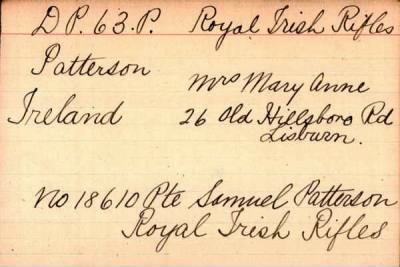 D P. 63. P. Royal Irish Rifles
Patterson
Mrs Mary Anne
Ireland 26 Old Hillsboro Rd
Lisburn.
No 18610 Pte Samuel Patterson
Royal Irish Rifles